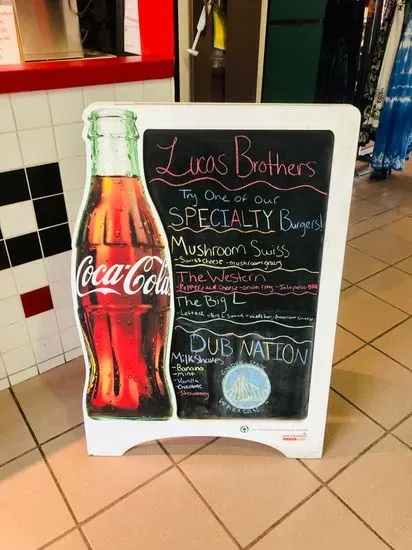 Coca-Cola
Lucas Brothers
Try One of our
SPECIALTY Burgers!
Mushroom Swiss
-Swiss cheese -mushroom gravy
The Western
-Pepperjack cheese -onion ring -Jalapeño -BBQ
The Big L
-Lettuce -Big L Sauce -American Cheese
DUB NATION
Milkshakes
-Banana
-Mint
-Vanilla
-Chocolate
-Strawberry
WARRIORS